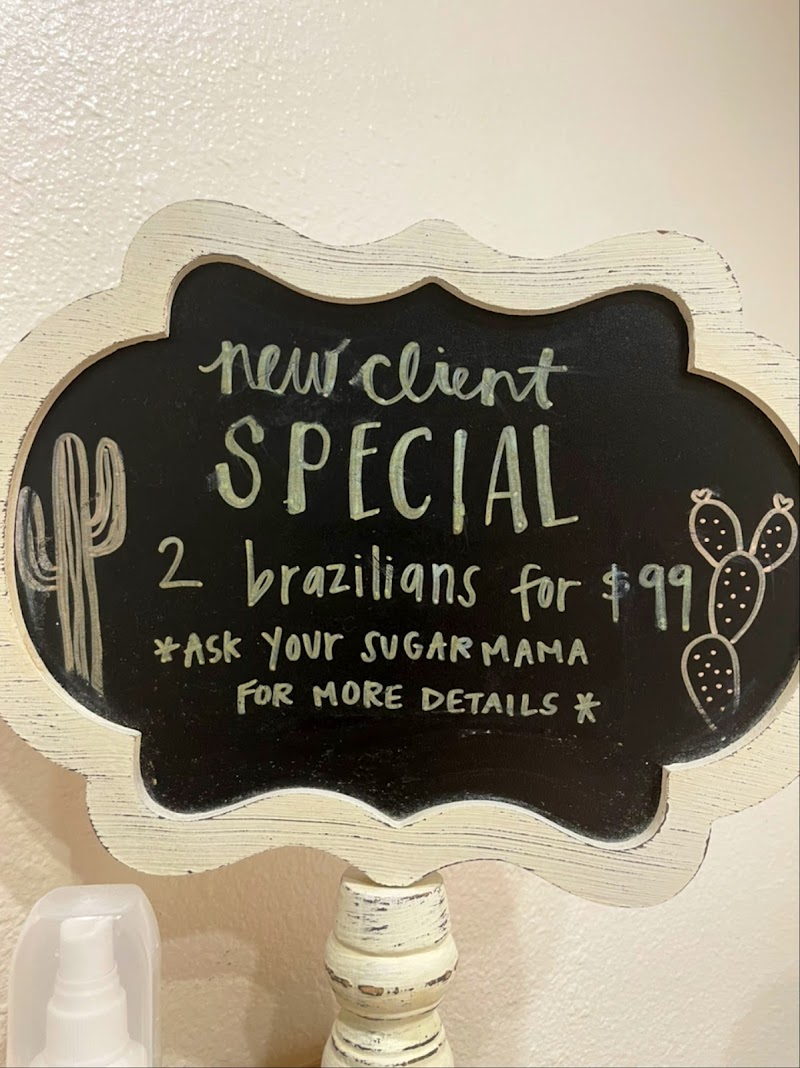 new client
SPECIAL
2 brazilians for $99
*ASK YOUR SUGAR MAMA
FOR MORE DETAILS *